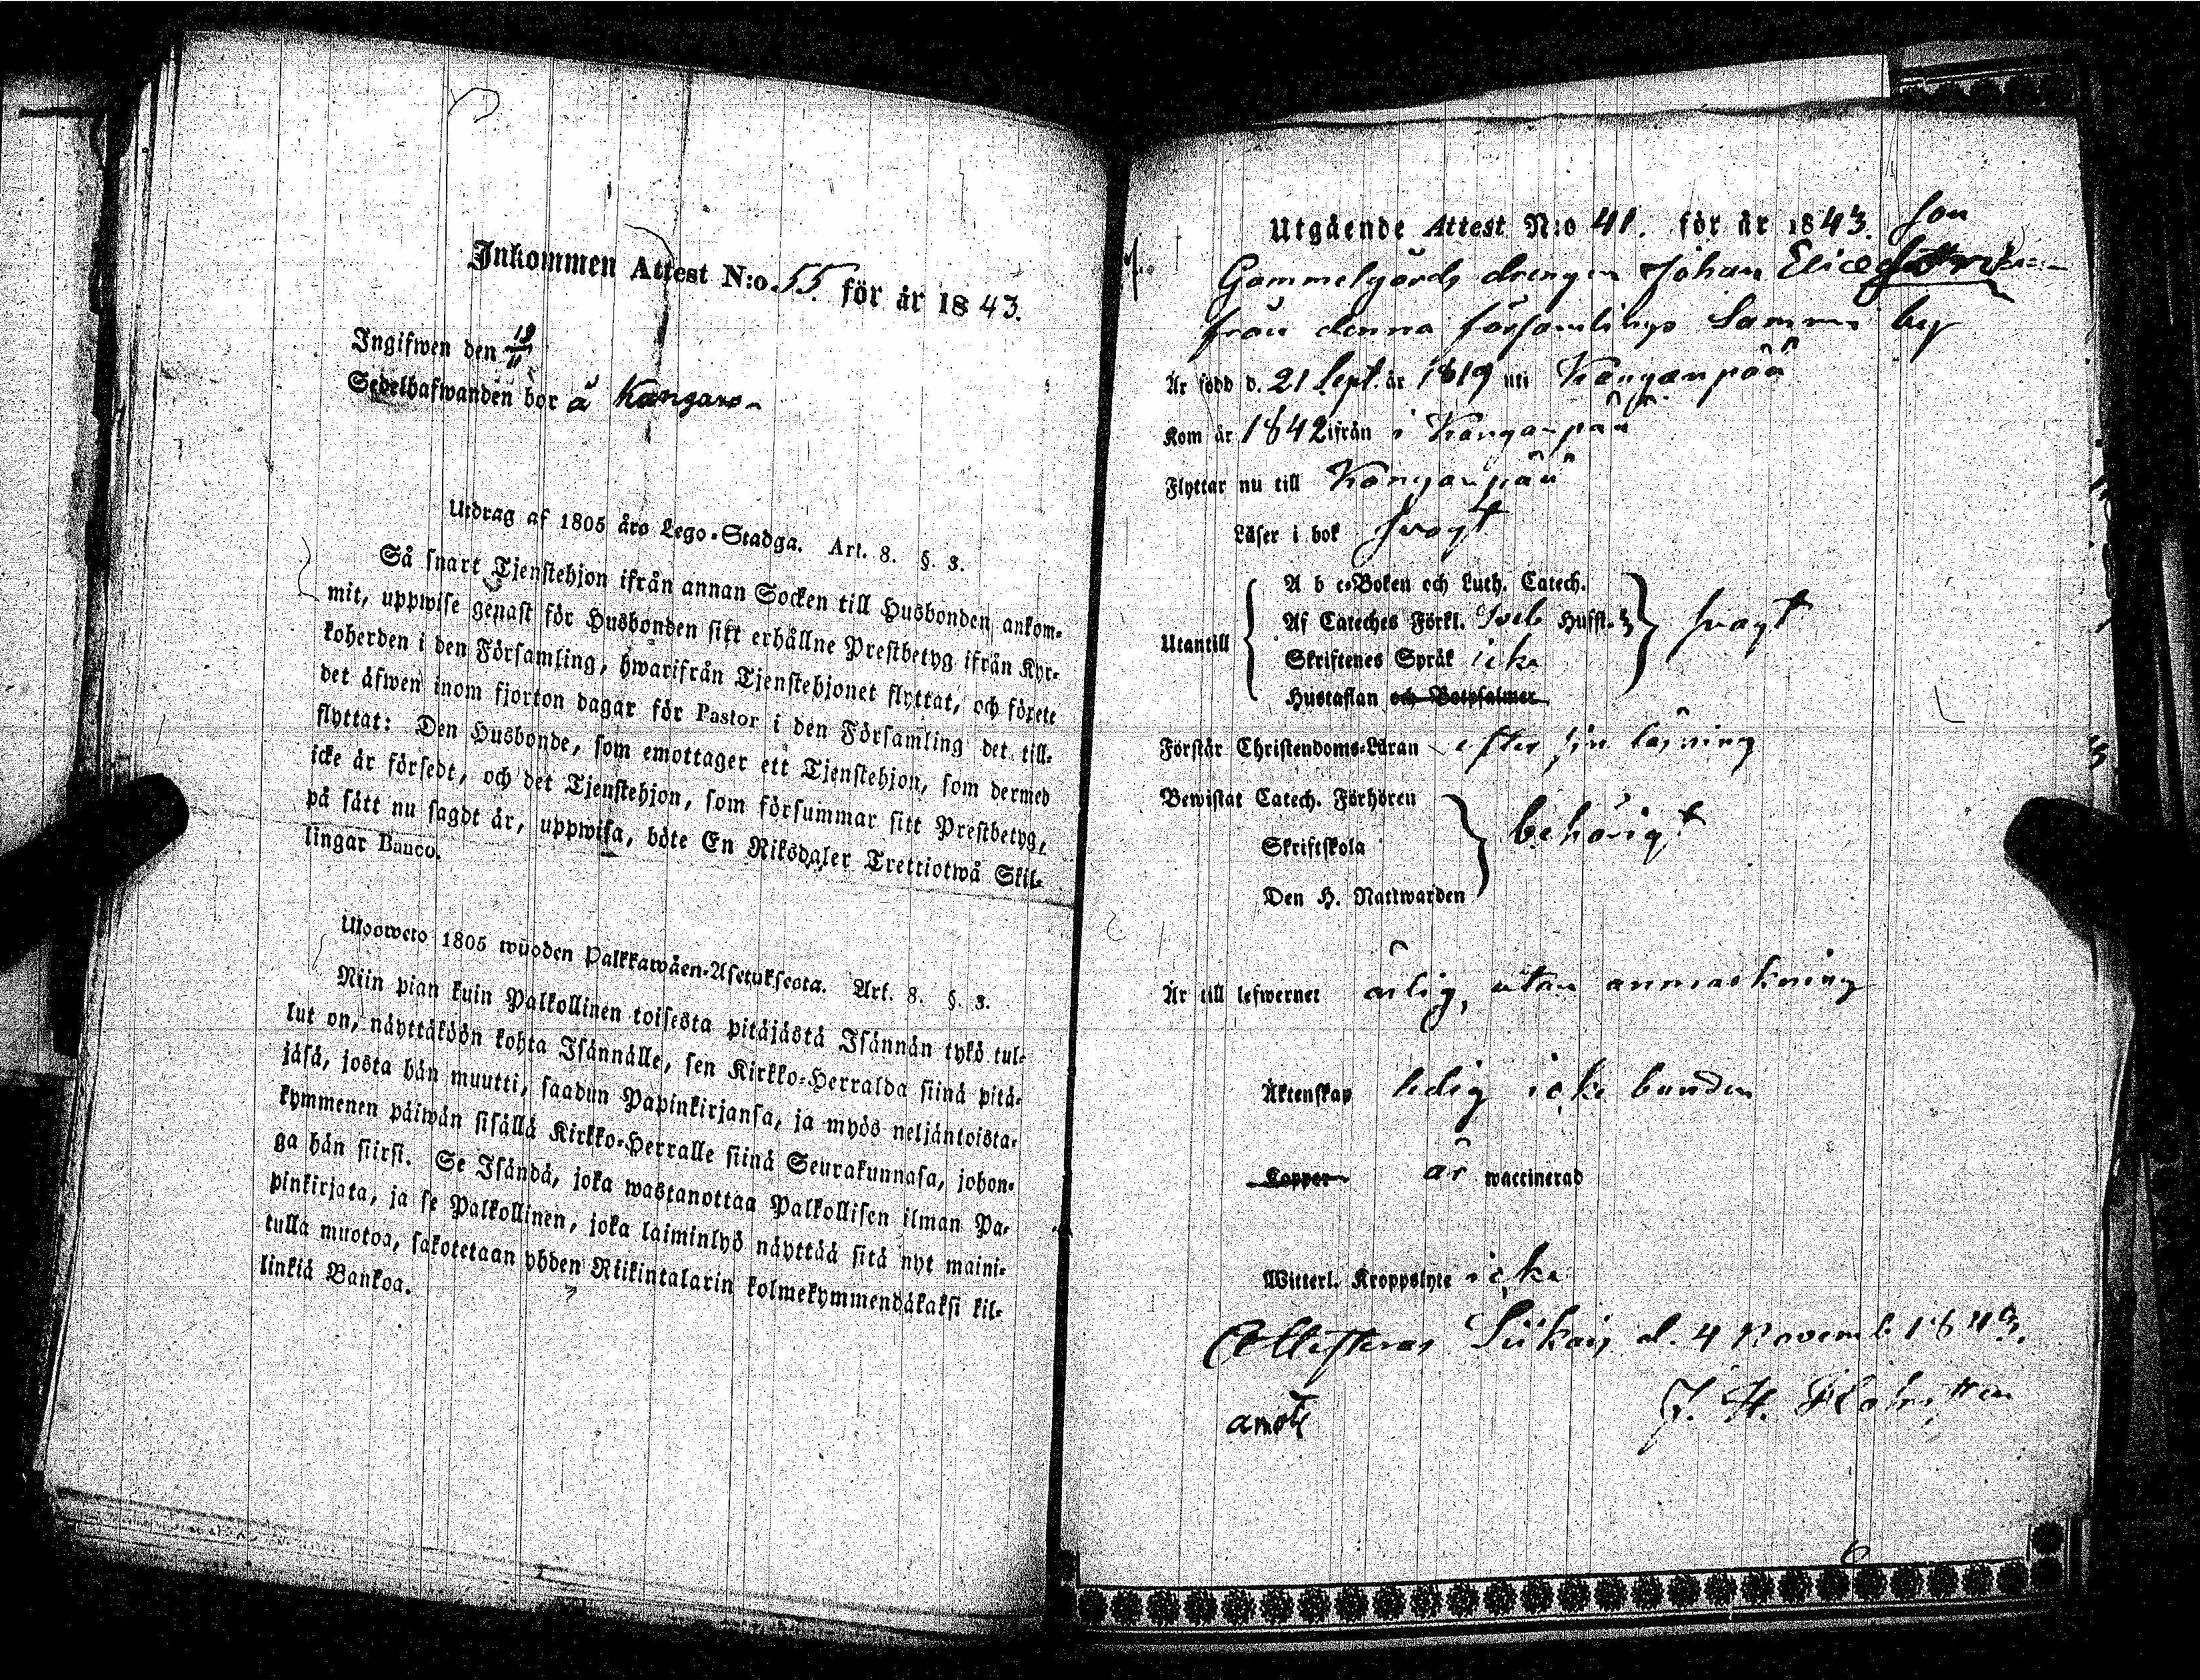 Inkommen Attest N:o 55 för år 1843.
Ingifwen den 18/11
Sedelhafwanden bor å Kangaro
Utdrag af 1805 års Lego-Stadga. Art. 8. §. 3.
Så snart Tjenstehjon ifrån annan Socken till Husbonden ankom-
mit, uppwise genast för Husbonden sitt erhållne Prestbetyg ifrån Kyr-
koherden i den Församling, hwarifrån Tjenstehjonet flyttat, och förete
det äfwen inom fjorton dagar för Pastor i den Församling det till-
flyttat: Den Husbonde, som emottager ett Tjenstehjon, som dermed
icke är försedt, och det Tjenstehjon, som försummar sitt Prestbetyg,
på sätt nu sagdt är, uppwisa, böte En Riksdaler Trettiotwå Skil-
lingar Banco.
Ulosweto 1805 wuoden Palkkawäen-Asetuksesta. Art. 8. §. 3.
Niin pian kuin Palkollinen toisesta pitäjästä Isännän tykö tul-
lut on, näyttäköön kohta Isännälle, sen Kirkko-Herralda siinä pitä-
jäsä, josta hän muutti, saadun Papinkirjansa, ja myös neljäntoista-
kymmenen päiwän sisällä Kirkko-Herralle siinä Seurakunnasa, johon-
ga hän siirsi. Se Isändä, joka wastanottaa Palkollisen ilman Pa-
pinkirjata, ja se Palkollinen, joka laiminlyö näyttää sitä nyt maini-
tulla muotoa, sakotetaan yhden Riikintalarin kolmekymmendäkaksi kil-
linkiä Bankoa.
Utgående Attest N:o 41. för år 1843.
son
Gammelgårds drengen Johan Elice
från denna församlings Sammi by
Är född d. 21 Sept. år 1819 uti Kanganpää
Kom år 1842 ifrån i Kanganpää
Flyttar nu till Kanganpää
Läser i bok svagt
A b c-Boken och Luth. Catech.
Af Cateches Förkl. Sveb Hufst. 3
Utantill svagt
Skriftenes Språk icke
Hustaflan och Botpsalmer
Förstår Christendoms-Läran efter sin läsning
Bewistat Catech. Förhören
Skriftskola behörigt
Den H. Nattwarden
Är till lefwernet ärlig, utan anmärkning
Äktenskap ledig icke bunden
Koppor är waccinerad
Witterl. Kroppslyte icke
Attesteras Siikais d. 4 Novemb 1843.
J. H.